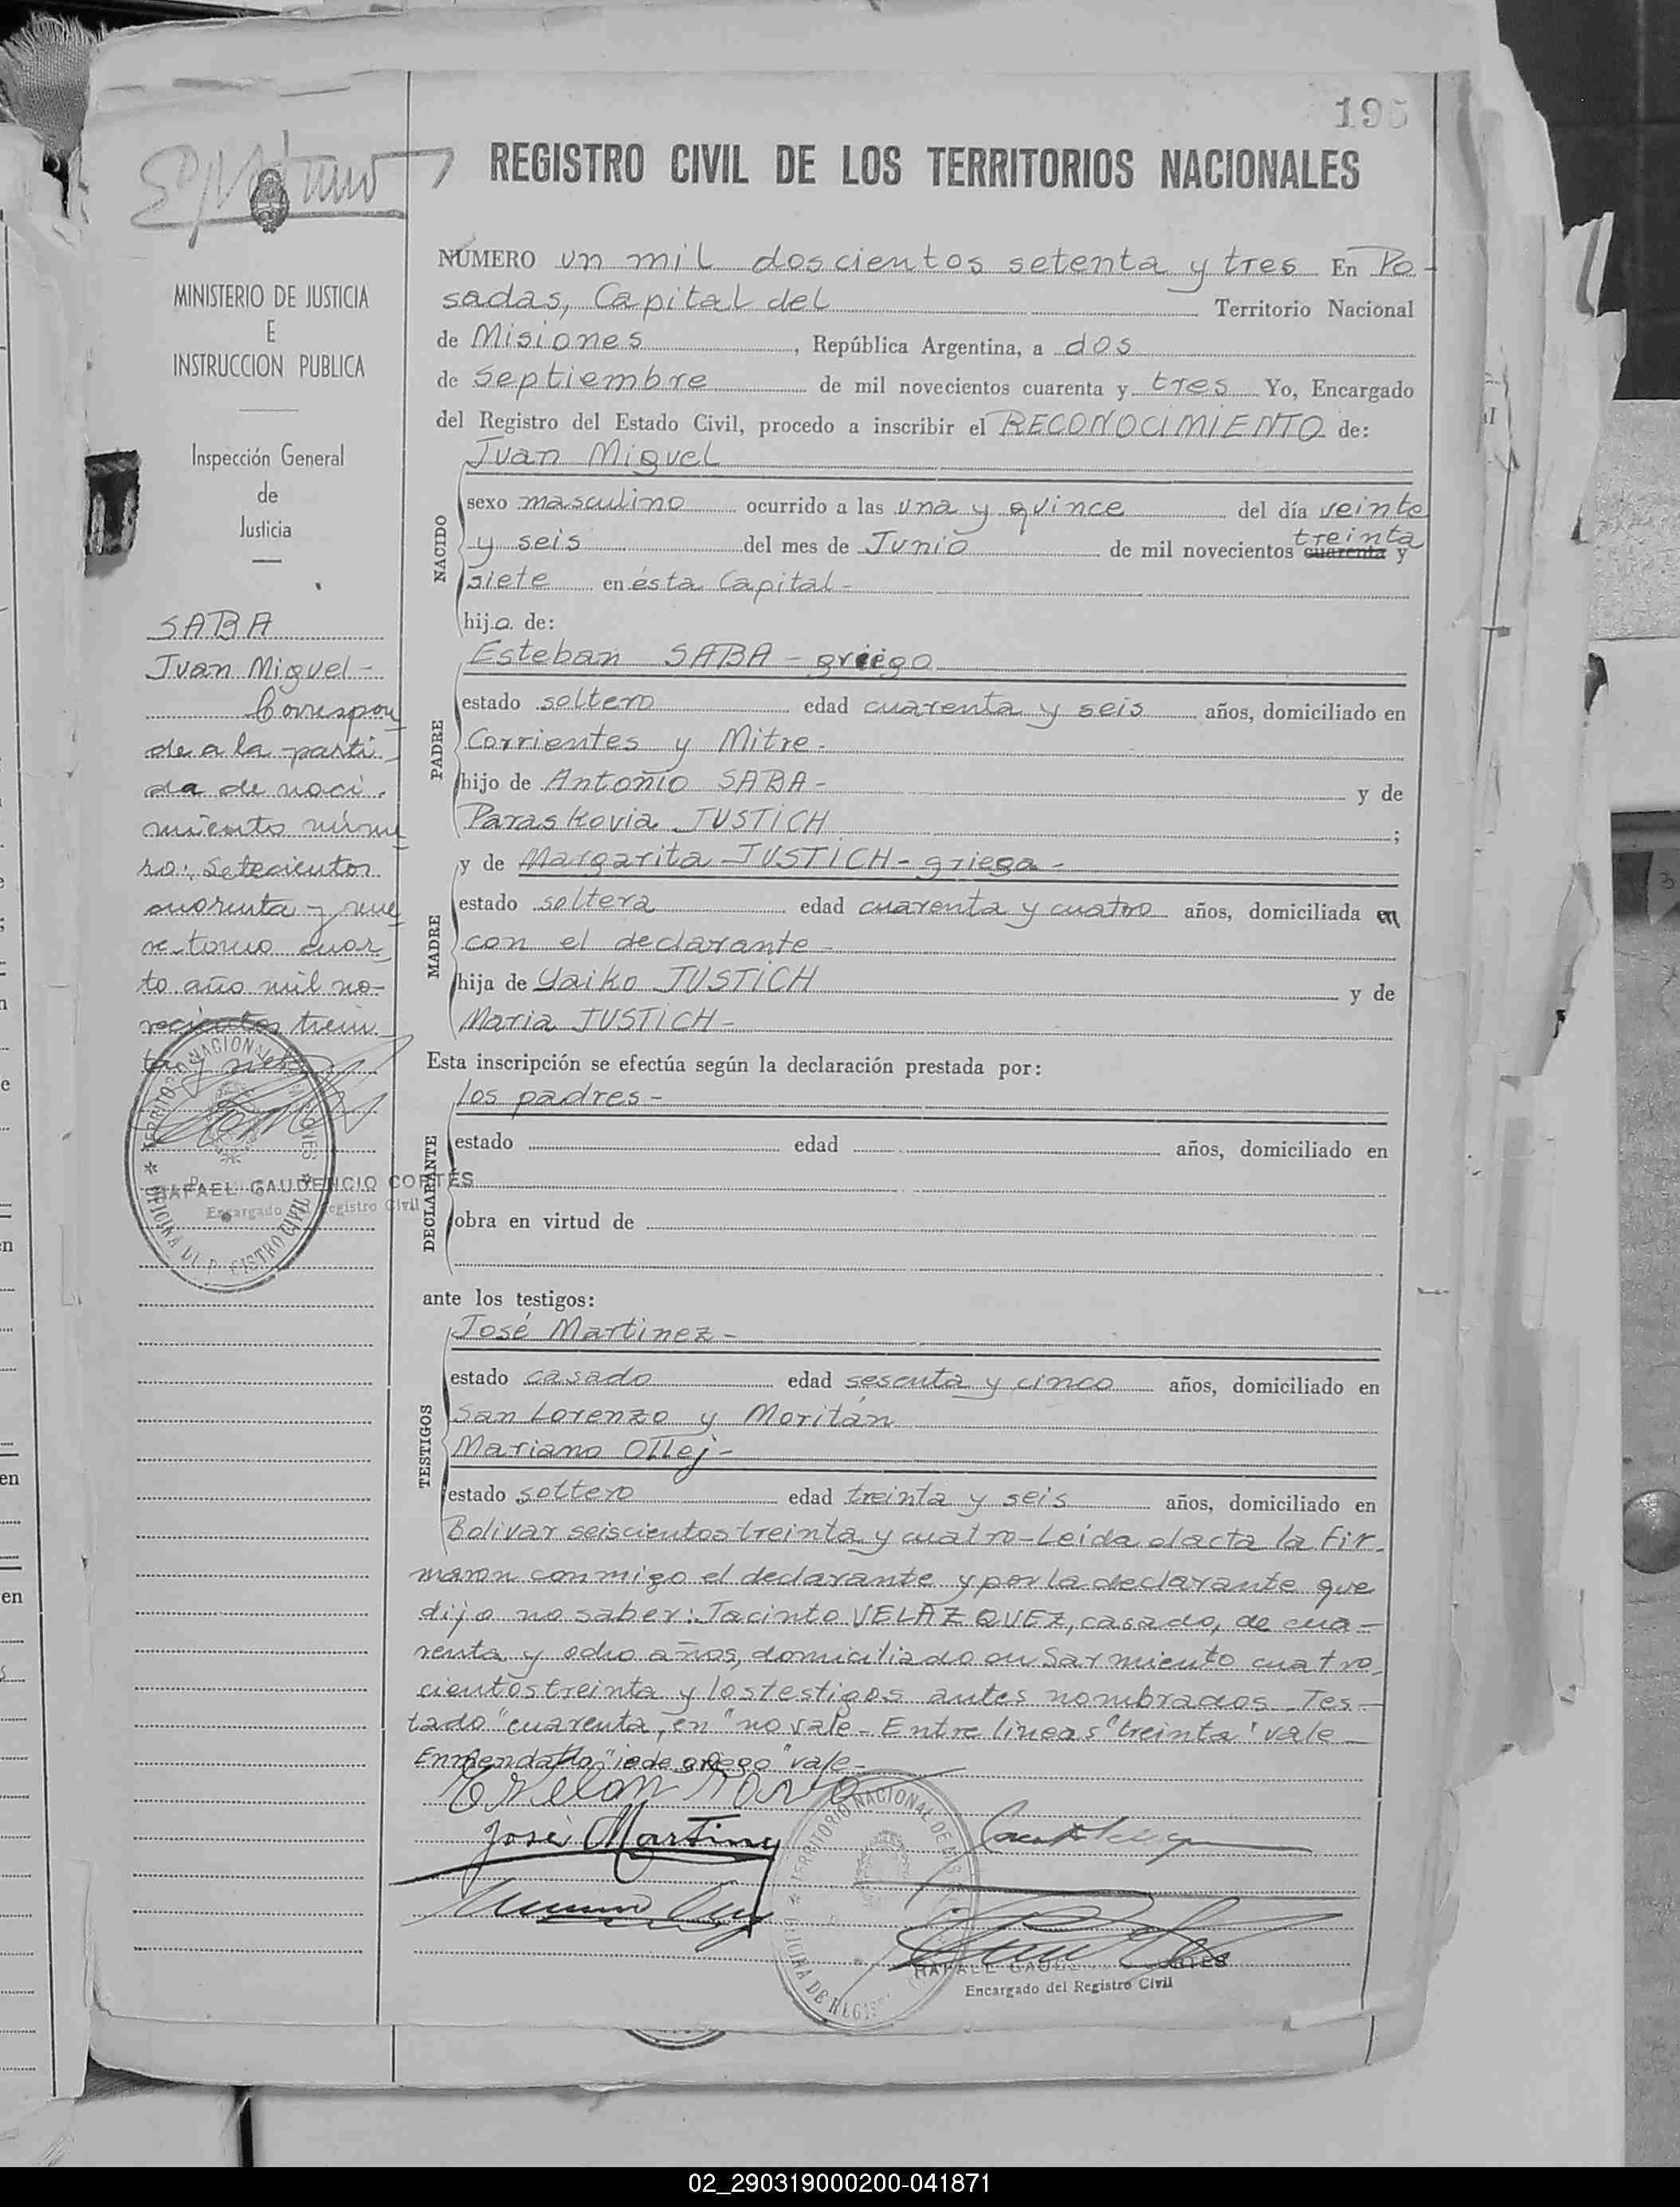 195
REGISTRO CIVIL DE LOS TERRITORIOS NACIONALES
MINISTERIO DE JUSTICIA
E
INSTRUCCION PUBLICA
Inspección General
de
Justicia
SABA
Juan Miguel-
Correspon
de a la parti
da de naci-
miento núme
ro: Setecientos
cuarenta y nue
ve tomo cuar
to año mil no-
vecientos trein
ta y siete
RAFAEL GAUDENCIO CORTÉS
Encargado Registro Civil
NÚMERO un mil doscientos setenta y tres En Po-
sadas, Capital del Territorio Nacional
de Misiones, República Argentina, a dos
de Septiembre de mil novecientos cuarenta y tres Yo, Encargado
del Registro del Estado Civil, procedo a inscribir el RECONOCIMIENTO de:
NACIDO
Juan Miguel
sexo masculino ocurrido a las una y quince del día veinte
y seis del mes de Junio de mil novecientos cuarenta treinta y
siete en ésta Capital-
hijo de:
PADRE
Esteban SABA - griego
estado soltero edad cuarenta y seis años, domiciliado en
Corrientes y Mitre-
hijo de Antonio SABA- y de
Paraskovia JUSTICH;
MADRE
y de Margarita JUSTICH- griega-
estado soltera edad cuarenta y cuatro años, domiciliada en
con el declarante-
hija de Yaiko JUSTICH y de
Maria JUSTICH-
Esta inscripción se efectúa según la declaración prestada por:
DECLARANTE
los padres-
estado edad años, domiciliado en
obra en virtud de
ante los testigos:
TESTIGOS
José Martinez-
estado casado edad sesenta y cinco años, domiciliado en
San Lorenzo y Moritán
Mariano Ollej-
estado soltero edad treinta y seis años, domiciliado en
Bolivar seiscientos treinta y cuatro-Leida el acta la fir-
maron conmigo el declarante y por la declarante que
dijo no saber: Jacinto VELAZQUEZ, casado, de cua-
renta y ocho años, domiciliado en Sarmiento cuatro-
cientos treinta y los testigos antes nombrados- Tes-
tado "cuarenta, en" no vale- Entre lineas "treinta" vale-
Enmendado "ie de griego" vale-
José Martinez
TERRITORIO NACIONAL DE MISIONES
OFICINA DE REGISTRO CIVIL
Encargado del Registro Civil
02_290319000200-041871